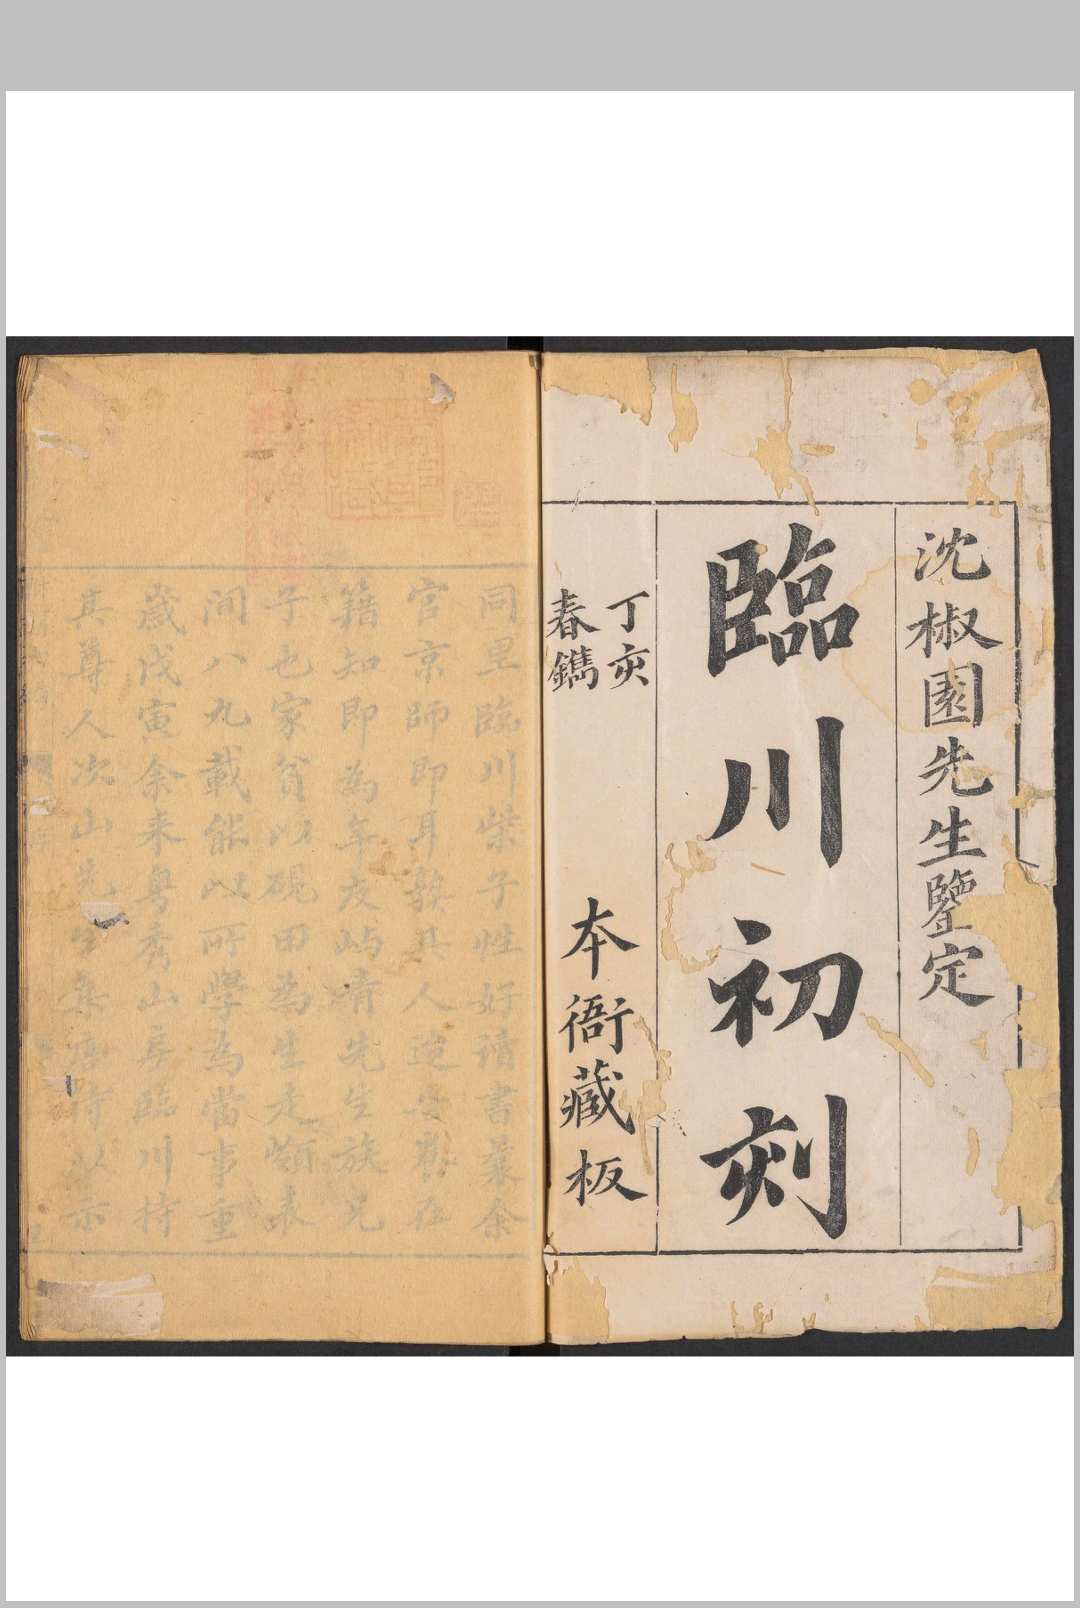 沈椒園先生鑒定
臨川初刻
丁亥
春鐫
本衙藏板
同里臨川柴子性好讀書曩余
官京師即耳熟其人造[…]在
籍知即為年友嶼青先生族兄
子也家貧以硯田為生走嶺表
間八九載能以所學為當事重
歲戊寅余來粵秀山房臨川持
其尊人次山先生集唐詩以示